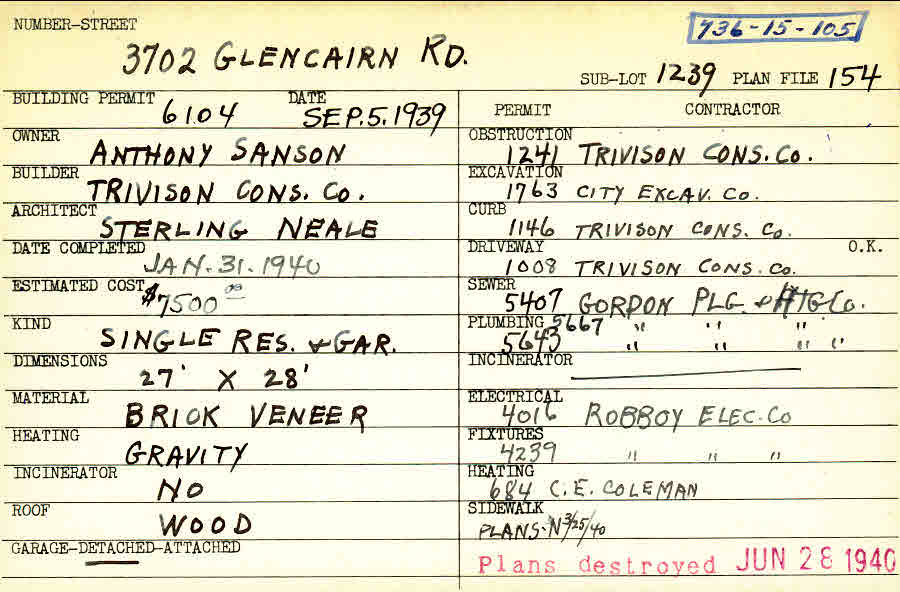 NUMBER-STREET
736-15-105
3702 GLENCAIRN RD.
SUB-LOT 1239 PLAN FILE 154
BUILDING PERMIT 6104 DATE SEP. 5. 1939
OWNER ANTHONY SANSON
BUILDER TRIVISON CONS. CO.
ARCHITECT STERLING NEALE
DATE COMPLETED JAN. 31. 1940
ESTIMATED COST $7500 00
KIND SINGLE RES. & GAR.
DIMENSIONS 27' X 28'
MATERIAL BRICK VENEER
HEATING GRAVITY
INCINERATOR NO
ROOF WOOD
GARAGE-DETACHED-ATTACHED
PERMIT CONTRACTOR
OBSTRUCTION 1241 TRIVISON CONS. CO.
EXCAVATION 1763 CITY EXCAV. CO.
CURB 1146 TRIVISON CONS. CO.
DRIVEWAY O.K.
1008 TRIVISON CONS. CO.
SEWER 5407 GORDON PLG. & HTG CO.
PLUMBING 5667 " " "
5643 " " " "
INCINERATOR
ELECTRICAL 4016 ROBBOY ELEC. CO
FIXTURES 4239 " " "
HEATING 684 C. E. COLEMAN
SIDEWALK
PLANS-N 3/25/40
Plans destroyed JUN 28 1940